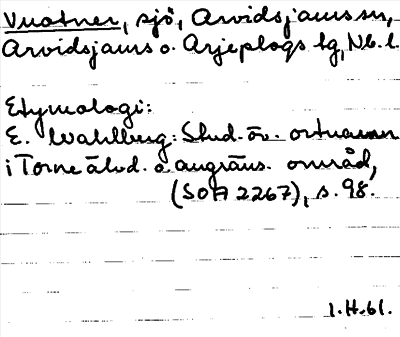 Vuotner, sjö, Arvidsjaurs sn,
Arvidsjaurs o. Arjeplogs lg, Nb. l.
Etymologi:
E. Wahlberg: Stud. öv. ortnamn
i Torne älvd. o. angräns. områd,
(SOA 2267), s. 98.
1.H.61.